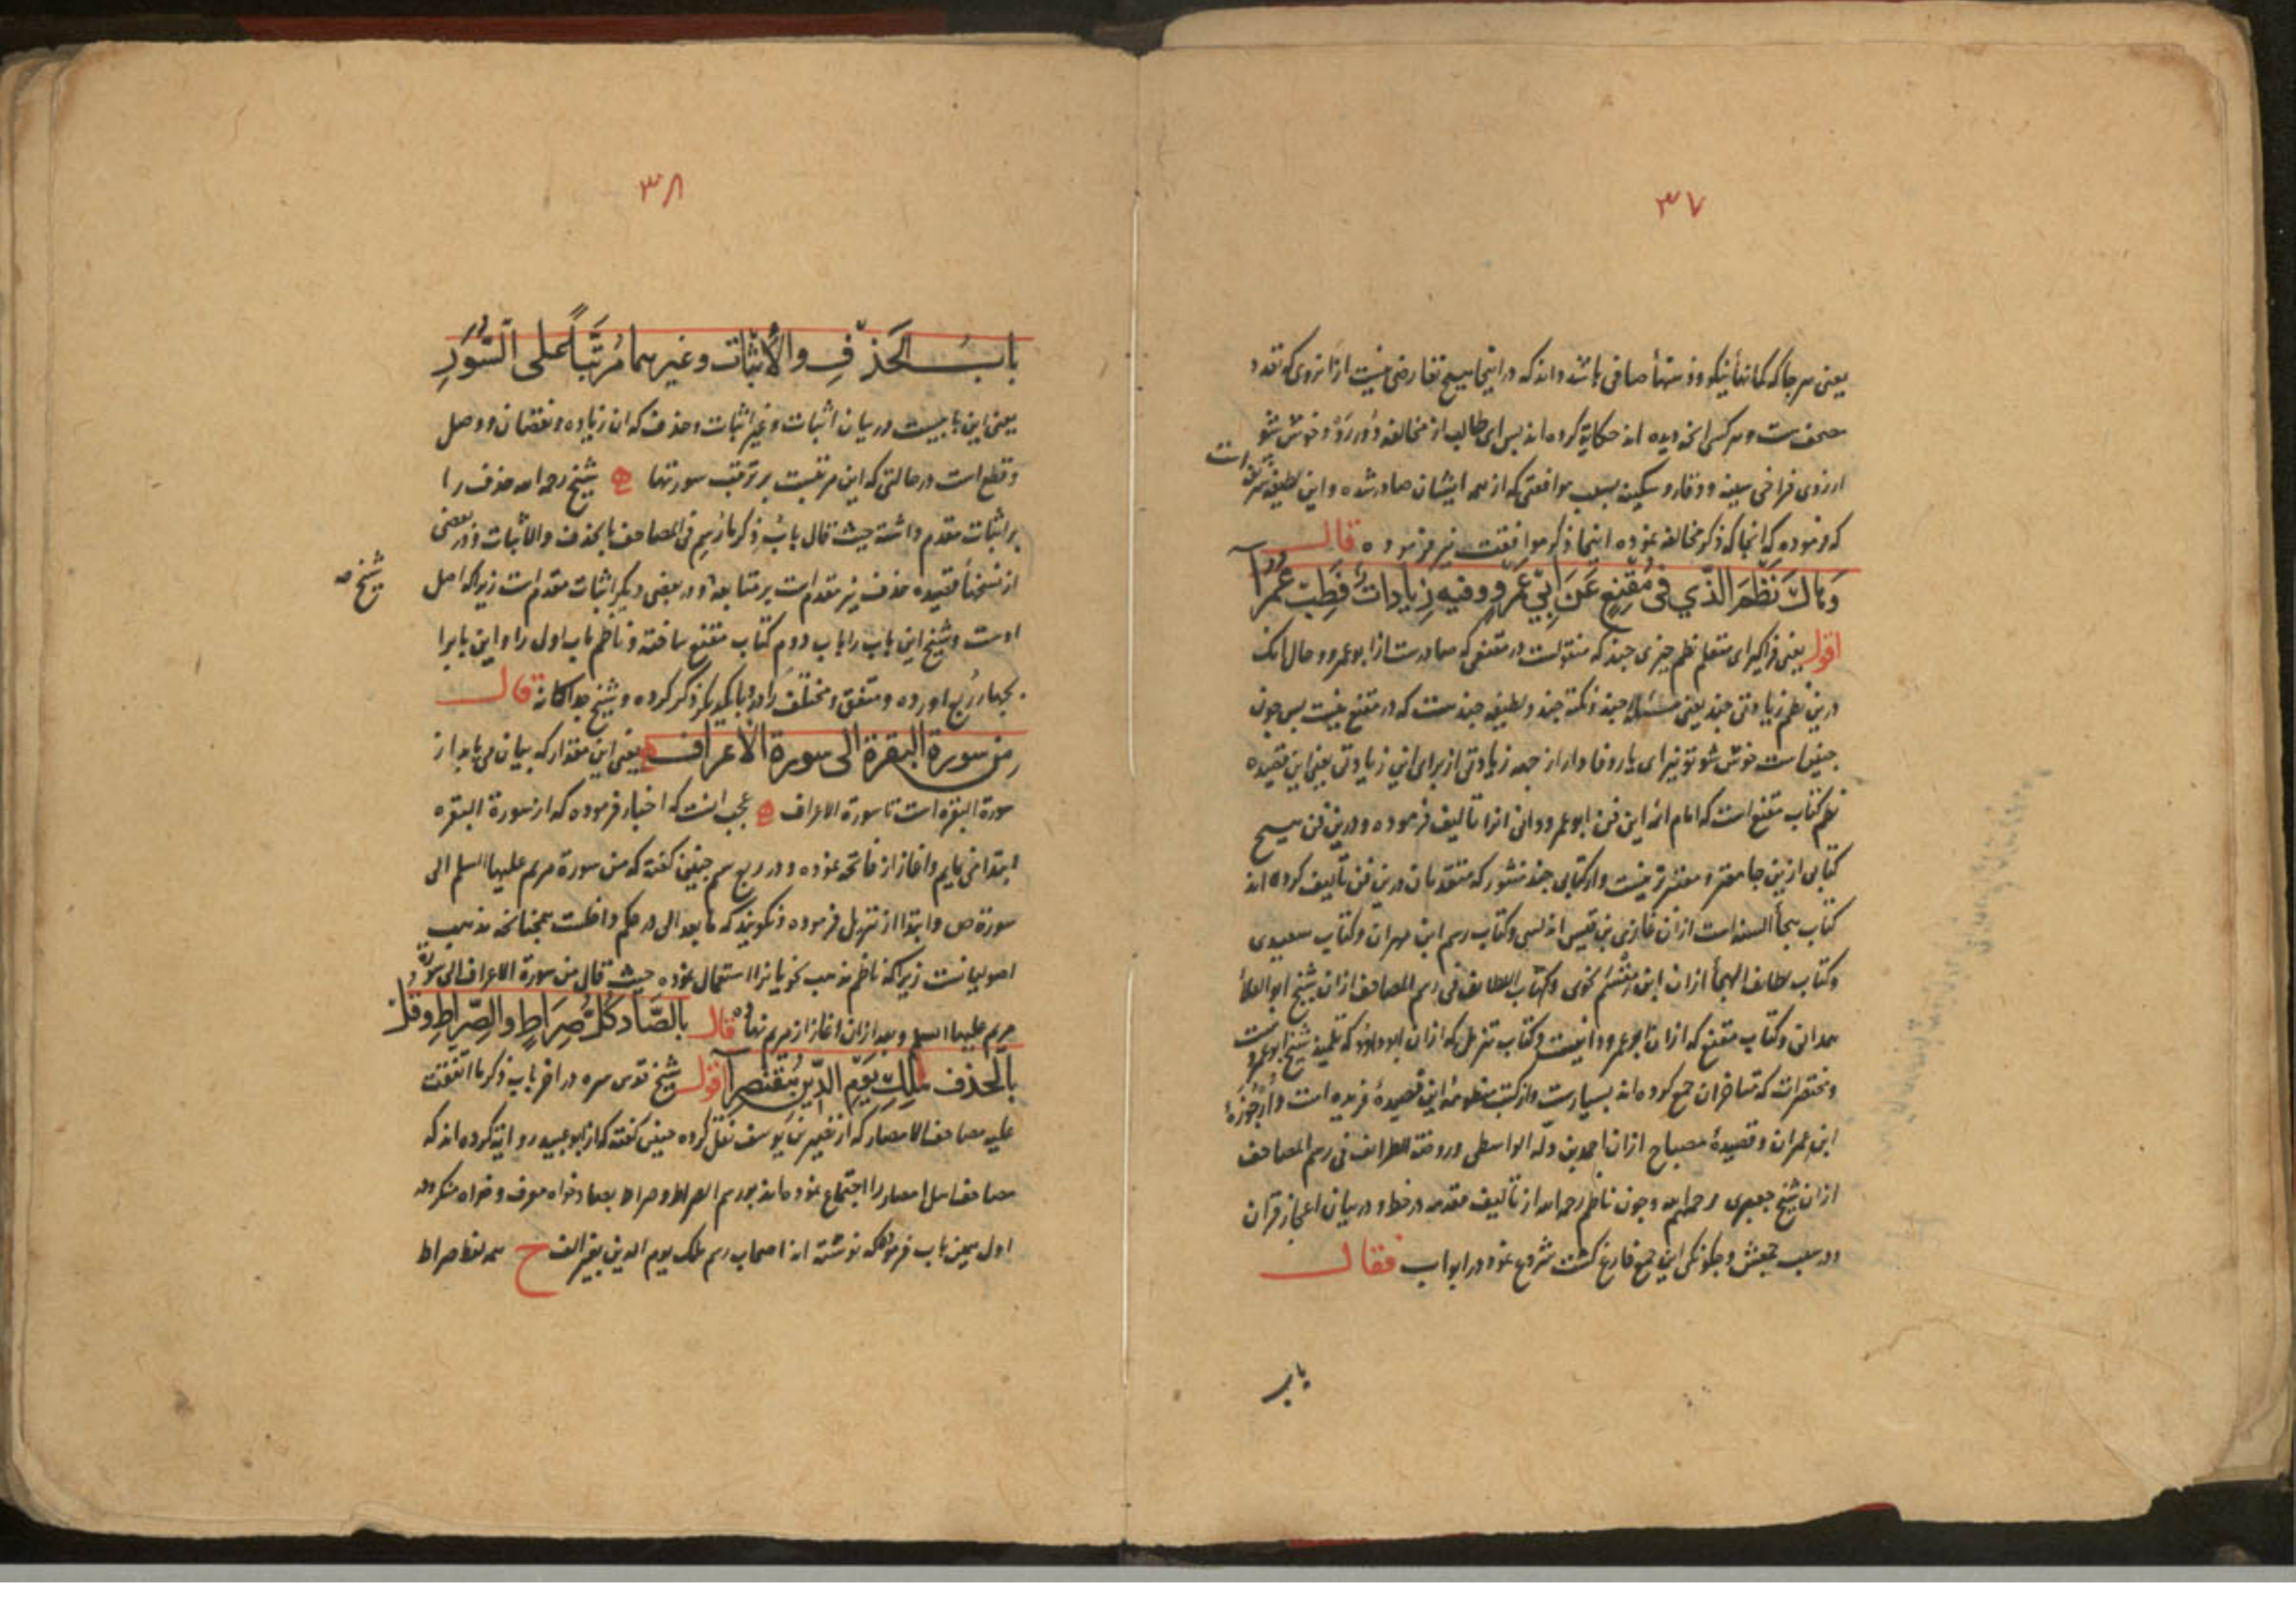 ۳۷
یعنی هر جا که کمانها نیکو و ذهنها صافی باشد داند که در اینجا هیچ تعارضی نیست از آنروی که تعدد
صحف است و هر کس آنچه دیده اند حکایة کرده اند پس ای طالب از مخالفه دور رو و خوش شو
از روی فراخی سینه و وقار و سکینه بسبب موافقتی که از همه ایشان صادر شده و این لطیفه
که فرموده که انجا که ذکر مخالفه نموده اینجا ذکر موافقت نیز فرموده قال
وَهَاكَ نَظْمَ الَّذِي فِي مُقْنِعٍ عَنْ أَبِي عَمْرٍو وَفِيهِ زِيَادَاتٌ فَطِبْ عُمُرَا
اقول یعنی فراگیر ای متعلم نظم چیزی چند که منقولست در مقنعی که صادرست از ابو عمرو و حال انک
درین نظم زیادتی چند یعنی مسئلهٔ چند و نکتهٔ چند و لطیفه چند هست که در مقنع نیست پس چون
چنین است خوش شو تو نیز ای یار وفادار از جهة زیادتی از برای این زیادتی یعنی این قصیده
نظم کتاب مقنع است که امام ائمه این فن ابو عمرو دانی انرا تالیف فرموده و درین فن هیچ
کتابی ازین جامعتر و معتبرتر نیست و از کتابی چند منثور که متقدمان درین فن تألیف کرده اند
کتاب هجأ السنه است از ان غازی بن قیس اندلسی و کتاب رسم ابن مهران و کتاب سعیدی
و کتاب لطایف الهجأ از ان ابن مقسم نحوی و کتاب اللطایف فی رسم المصاحف از ان شیخ ابو العلأ
همدانی و کتاب مقنع که از ان ابو عمرو دانیست و کتاب تنزیل که از ان ابو داود که تلمیذ شیخ ابو عمروست
و مختصرات که متأخران جمع کرده اند بسیارست و از کتب منظومه این قصیدهٔ فریده است و ارجوزهٔ
ابن عمران و قصیدهٔ مصباح از ان احمد بن دله الواسطی و روضة الطرائف فی رسم المصاحف
از ان شیخ جعبری رحمهم الله و چون ناظم رحمه الله از تألیف مقدمه در خط و در بیان اعجاز قرآن
و در سبب جمعش و چگونگی این جمع فارغ گشت شروع نمود در ابواب فقال
باب
۳۸
بَابُ الْحَذْفِ وَالْأَثْبَاتِ وَغَيْرِهِمَا مُرَتَّبًا عَلَى السُّوَرِ
یعنی این بابیست در بیان اثبات و غیر اثبات و حذف که ان زیاده و نقصان و وصل
و قطع است در حالتی که این مرتبست بر ترتیب سورتها شیخ رحمه الله حذف را
بر اثبات مقدم داشته حیث قال باب ذکر ما رسم فی المصاحف بالحذف والاثبات و در بعضی
از نسخهأ قصیده حذف نیز مقدم است بر متابعة و در بعضی دیگر اثبات مقدم است زیرا که اصل
شیخ صه
اوست و شیخ این باب را باب دوم کتاب مقنع ساخته و ناظم باب اول را و این باب را
بچهار ربع اورده و متفق و مختلف را در با یکدیگر ذکر کرده و شیخ جداگانه قال
مِن سورة البقرة الى سورة الأعراف یعنی این مقدار که بیان می یابد از
سورة البقره است تا سورة الاعراف عجب انست که اخبار فرموده که از سورة البقره
ابتدا می نمایم و اغاز از فاتحه نموده و در ربع سیم چنین گفته که من سورة مریم علیها السلم الی
سورة ص و ابتدا از تنزیل فرموده و نگویند که ما بعد الی در حکم داخلست همچنانچه مذهب
اصولیانست زیرا که ناظم مذهب نحویانرا استعمال نموده حیث قال من سورة الاعراف الی سورة
مریم علیها السلم و بعد از ان اغاز از مریم نهاد قال بِالصَّادِ كُلُّ صِرَاطٍ وَالصِّرَاطِ وَقُلْ
بِالْحَذْفِ مٰلِكِ يَوْمِ الدِّينِ مُقْتَصِرَا اقول شیخ قدس سره در اخر باب ذکر ما اتفقت
علیه مصاحف الامصار که از نصیر بن یوسف نقل کرده چنین گفته که از ابو عبید روایة کرده اند که
مصاحف اهل امصار را اجتماع نموده اند بر رسم الصراط و صراط بصاد خواه معرف و خواه منکر و در
اول همین باب فرموده که نوشته اند اصحاب رسم ملک یوم الدین بغیر الف ح همه لفظ صراط